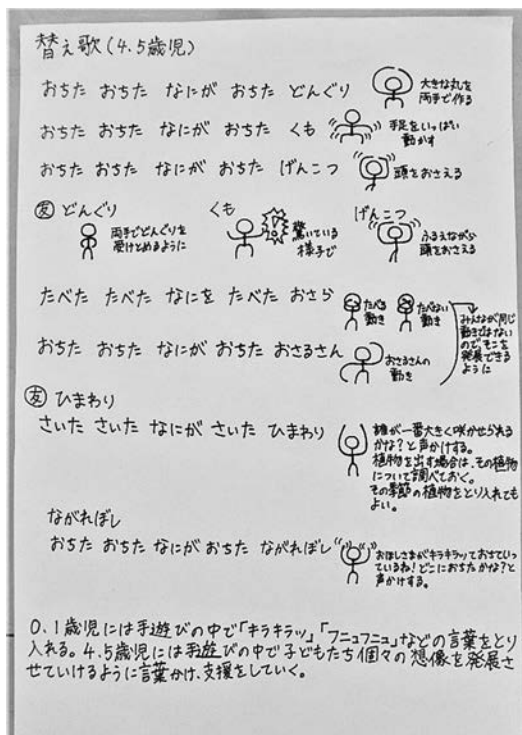 替え歌(4.5歳児)
おちた おちた なにが おちた どんぐり
大きな丸を
両手で作る
おちた おちた なにが おちた くも
手足をいっぱい
動かす
おちた おちた なにが おちた げんこつ
頭をおさえる
友 どんぐり
両手でどんぐりを
受けとめるように
くも
驚いている
様子で
げんこつ
ふるえながら
頭をおさえる
たべた たべた なにを たべた おさら
たべる
動き
たべない
動き
おちた おちた なにが おちた おさるさん
おさるさんの
動き
みんなが同じ
動きではない
のでそこを
発展できる
ように
友 ひまわり
さいた さいた なにが さいた ひまわり
誰が一番大きく咲かせられる
かな?と声かけする。
植物を出す場合は、その植物
について調べておく。
その季節の植物をとり入れても
よい。
ながれぼし
おちた おちた なにが おちた ながれぼし
おほしさまがキラキラッておちていっ
ているね!どこにおちたかな?と
声かけする。
0.1歳児には手遊びの中で「キラキラッ」「フニュフニュ」などの言葉をとり
入れる。4.5歳児には手遊びの中で子どもたち個々の想像を発展さ
せていけるように言葉かけ、支援をしていく。